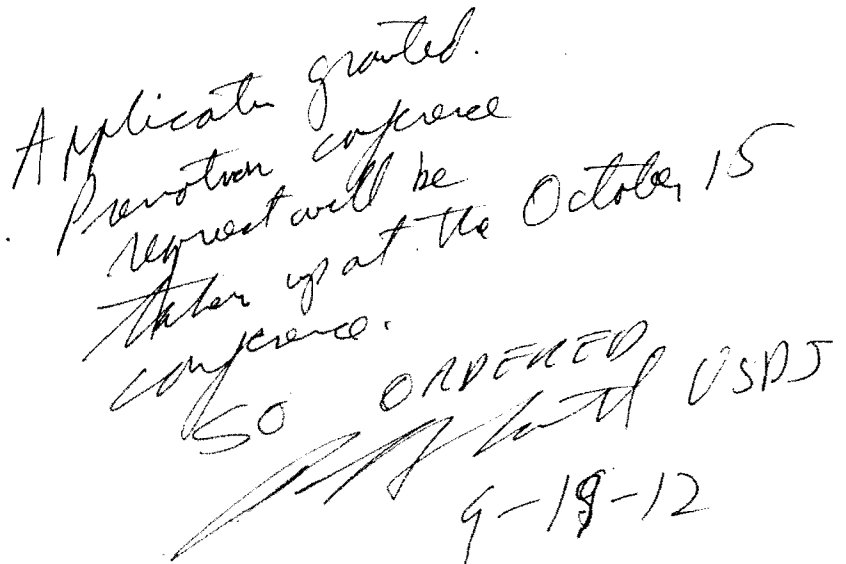 Application granted.
Premotion conference
request will be
taken up at the October 15
conference.
SO ORDERED
USDJ
9-19-12